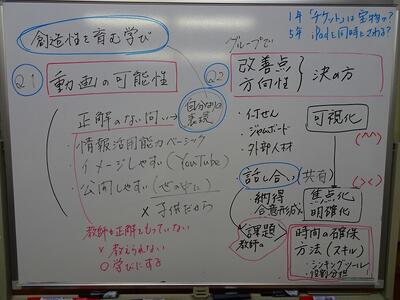 創造性を育む学び
1年「チケット」は宝物か?
5年 iPadと同時とされる?
Q1 動画の可能性
正解のない問い→自分なりの表現
・情報活用能力ベーシック
・イメージしやすい(YouTube)
・公開しやすい(世の中に)
× 子供だから
教師が正解をもっていない
× 教えられない
○ 学びにする
Q2 グループで
改善点
方向性
決め方
・付せん
・ジャムボード
・外部人材
可視化
(^^)
話し合い(共有)
(><)
・納得
合意形成
焦点化
明確化
課題
教師の
時間の確保
方法(スキル)
・シンキングツール
・役割分担